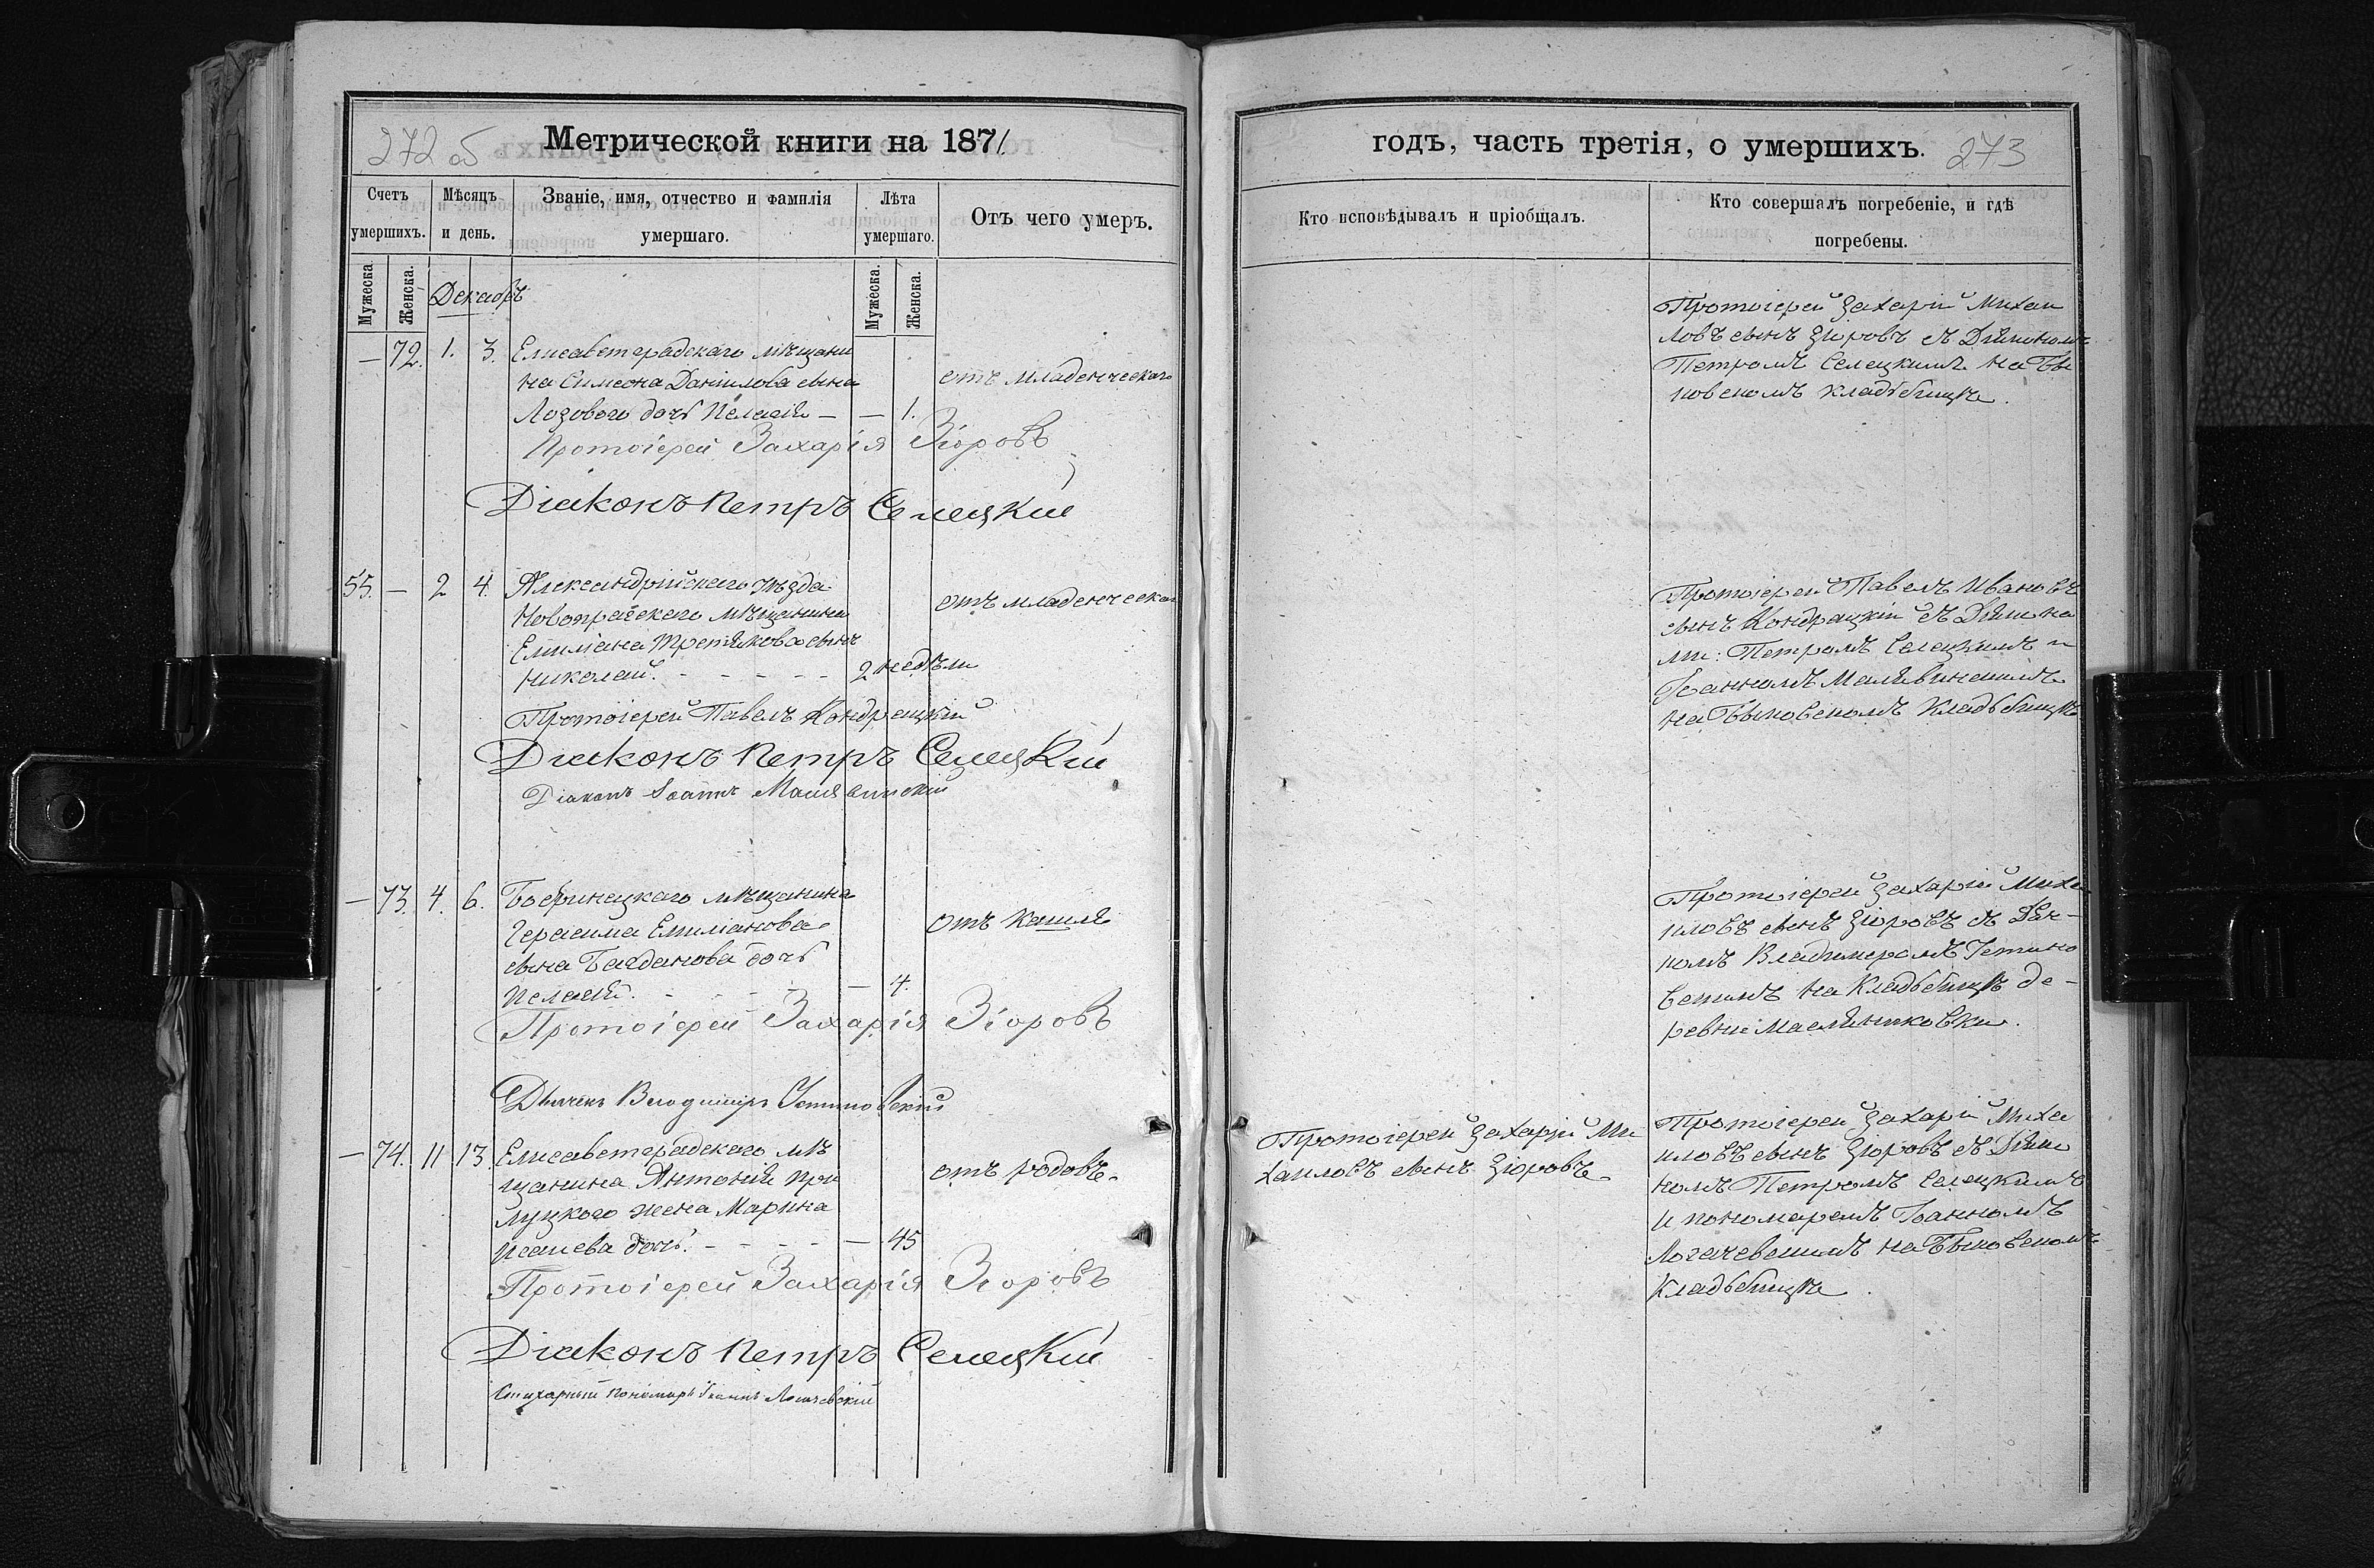 272 об
Метрической книги на 1871
Счетъ умершихъ.
Мѣсяцъ и день.
Званіе, имя, отчество и фамилія умершаго.
Лѣта умершаго.
Отъ чего умеръ.
Мужеска.
Женска.
Мужеска.
Женска.
Декабрь
— 72. 1. 3. Елисаветградскаго мѣщани
на Симеона Даніилова сына
отъ младенческаго
Лозового дочь Пелагія — — 1.
Протоіерей Захарія Зіоровъ
Діаконъ Петръ Селецкій
55. — 2 4. Александрійскаго уѣзда
Новопражскаго мѣщанина
отъ младенческаго
Емиліана Третьякова сынъ
Николай. - - - - - 2 недѣли
Протоіерей Павелъ Кондрацкій
Діаконъ Петръ Селецкій
Діаконъ Іоаннъ Малявинскій
— 73. 4. 6. Бобринецкаго мѣщанина
Герасима Емиліанова
отъ кашля
сына Багданова дочь
Пелагія. - - - — 4.
Протоіерей Захарія Зіоровъ
Дьячекъ Владиміръ Устиновскій
— 74. 11 13. Елисаветградскаго мѣ
щанина Антонія При
отъ родовъ.
луцкого жена Марина
Исаиева дочь. - - - - — 45
Протоіерей Захарія Зіоровъ
Діаконъ Петръ Селецкій
Стихарный пономарь Іоаннъ Логачевскій
годъ, часть третія, о умершихъ.
273
Кто исповѣдывалъ и пріобщалъ.
Кто совершалъ погребеніе, и гдѣ
погребены.
Протоіерей Захарій Михаи
ловъ сынъ Зіоровъ съ Діякономъ
Петромъ Селецкимъ на Бы
ковскомъ кладбѣищѣ.
Протоіерей Павелъ Ивановъ
сынъ Кондрацкій съ Діякона
ми: Петромъ Селецкимъ и
Іоанномъ Малявинскимъ
на Быковскомъ кладбѣищѣ
Протоіерей Захарій Миха
иловъ сынъ Зіоровъ съ Дяч-
комъ Владимеромъ Устино
вскимъ на кладбѣищѣ де-
ревни Масляниковки.
Протоіерей Захарій Ми
хаиловъ сынъ Зіоровъ.
Протоіерей Захарій Миха
иловъ сынъ Зіоровъ съ Діяко
номъ Петромъ Селецкимъ
и пономаремъ Іоанномъ
Логачевскимъ на Быковскомъ
кладбѣищѣ.